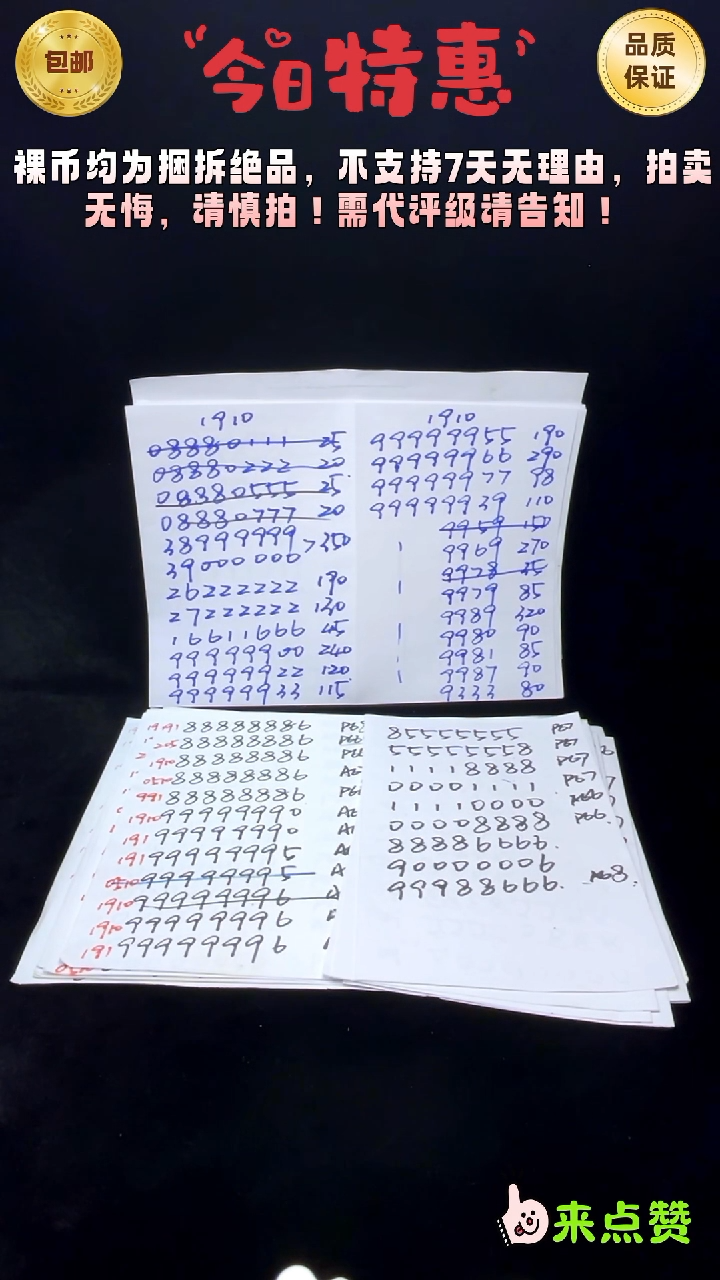 包邮
“今日特惠”
品质
保证
裸币均为捆拆绝品，不支持7天无理由，拍卖
无悔，请慎拍！需代评级请告知！
1910
08880111 25
08880222 20
08880555 25
08880777 20
38999999
39000000 > 350
26222222 190
27222222 130
16611666 45
99999900 240
99999922 120
99999933 115
1910
99999955 190
99999966 290
99999977 98
99999939 110
9959 150
9969 270
9978 25
9979 85
9989 320
9980 90
9981 85
9987 90
9333 80
1991 88888886
88888886
1910 88888886
0510 88888886
991 88888886
1910 99999990
191 99999990
191 99999995
0510 99999995
1910 99999996
1910 99999996
191 99999996
85555555 P67
55555558 P67
11118888 P67
00001111 P67
11110000 P66
00008888 P66.
88886666.
90000006
99988666. P68.
来点赞